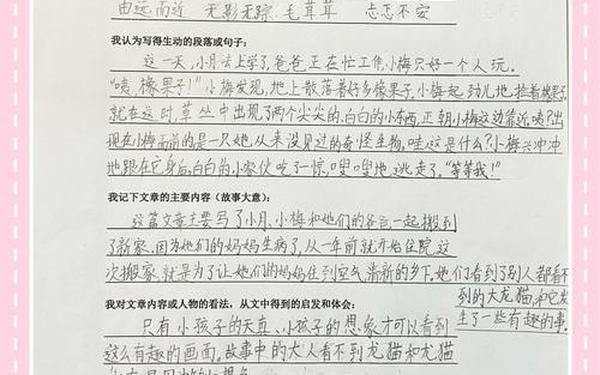 由远而近 无影无踪 毛茸茸 忐忑不安
我认为写得生动的段落或句子:
这一天,小月去上学了,爸爸正在忙工作,小梅只好一个人玩。
“咦,橡果子!”小梅发现,地上散落着好多橡果子,小梅起劲儿地捡着橡果子,
就在这时,草丛中出现了两个尖尖的,白白的小东西,正朝小梅这边靠近,咦?出
现在小梅面前的是一只她从来没见过的奇怪生物。哇,这是什么?小梅兴冲冲
地跟在它身后,白白的小家伙吃了一惊,嗖嗖地逃走了。“等等我!”
我记下文章的主要内容(故事大意):
这篇文章主要写了小月、小梅和她们的爸爸一起搬到
了新家。因为她们的妈妈生病了,从一年前就开始住院,这
次搬家,就是为了让她们的妈妈住到空气清新的乡下。她们看到了别人都看不
到的大龙猫,和它发
生了一些有趣的事。
我对文章内容或人物的看法,从文中得到的启发和体会:
只有小孩子的天真、小孩子的想象才可以看到
这么有趣的画面。故事中的大人看不到龙猫和龙猫